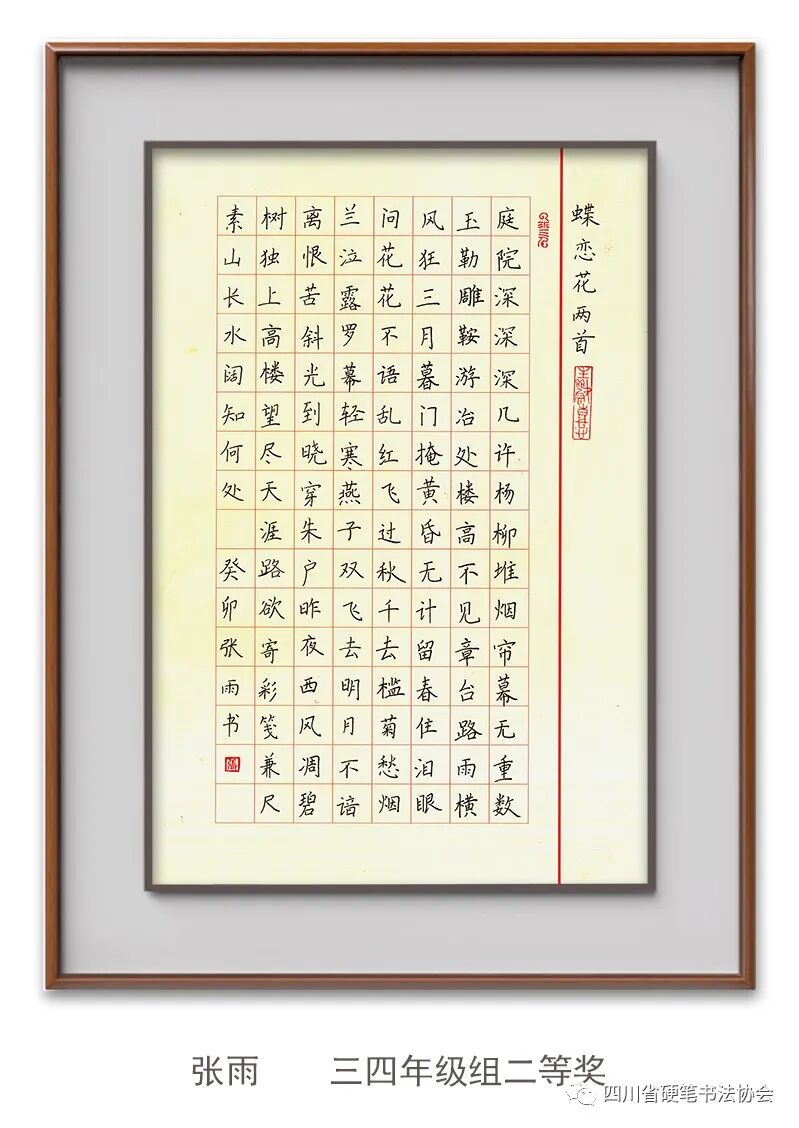 蝶恋花两首
庭院深深深几许杨柳堆烟帘幕无重数
玉勒雕鞍游冶处楼高不见章台路雨横
风狂三月暮门掩黄昏无计留春住泪眼
问花花不语乱红飞过秋千去槛菊愁烟
兰泣露罗幕轻寒燕子双飞去明月不谙
离恨苦斜光到晓穿朱户昨夜西风凋碧
树独上高楼望尽天涯路欲寄彩笺兼尺
素山长水阔知何处 癸卯张雨书
张雨 三四年级组二等奖
四川省硬笔书法协会